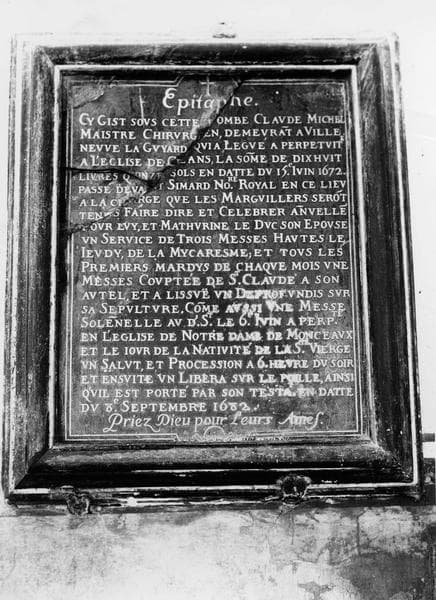 Epitaphe.
CY GIST SOVS CETTE TOMBE CLAVDE MICHEL
MAISTRE CHIRVRGIEN, DEMEVRĀT A VILLE
NEVVE LA GVYARD QVI A LEGVÉ A PERPETVITÉ
A L'EGLISE DE CEANS, LA SOME DE DIXHVIT
LIVRES QVINZE SOLS EN DATTE DV 15.E IVIN 1672.
PASSÉ DEVANT SIMARD NO.RE ROYAL EN CE LIEV
A LA CHARGE QUE LES MARGVILLERS SERŌT
TENVS FAIRE DIRE ET CELEBRER ANVELLE
POVR LVY, ET MATHVRINE LE DVC SON EPOVSE
VN SERVICE DE TROIS MESSES HAVTES LE
IEVDY, DE LA MYCARESME, ET TOVS LES
PREMIERS MARDYS DE CHAQVE MOIS VNE
MESSES COVPTÉE DE S. CLAVDE A SON
AVTEL, ET A L'ISSVE VN DEPROFVNDIS SVR
SA SEPVLTVRE, COME AVSSI VNE MESSE
SOLENELLE AV D.S. LE 6.E IVIN A PERP.
EN L'EGLISE DE NOTRE DAME DE MONCEAUX
ET LE IOVR DE LA NATIVITÉ DE LA S.TE VIERGE
VN SALVT, ET PROCESSION A 6. HEVRE DV SOIR
ET ENSVITE VN LIBERA SVR LE POILLE, AINSI
QV'IL EST PORTÉ PAR SON TESTA. EN DATTE
DV 8.E SEPTEMBRE 1682.
Priez Dieu pour Leurs Ames.